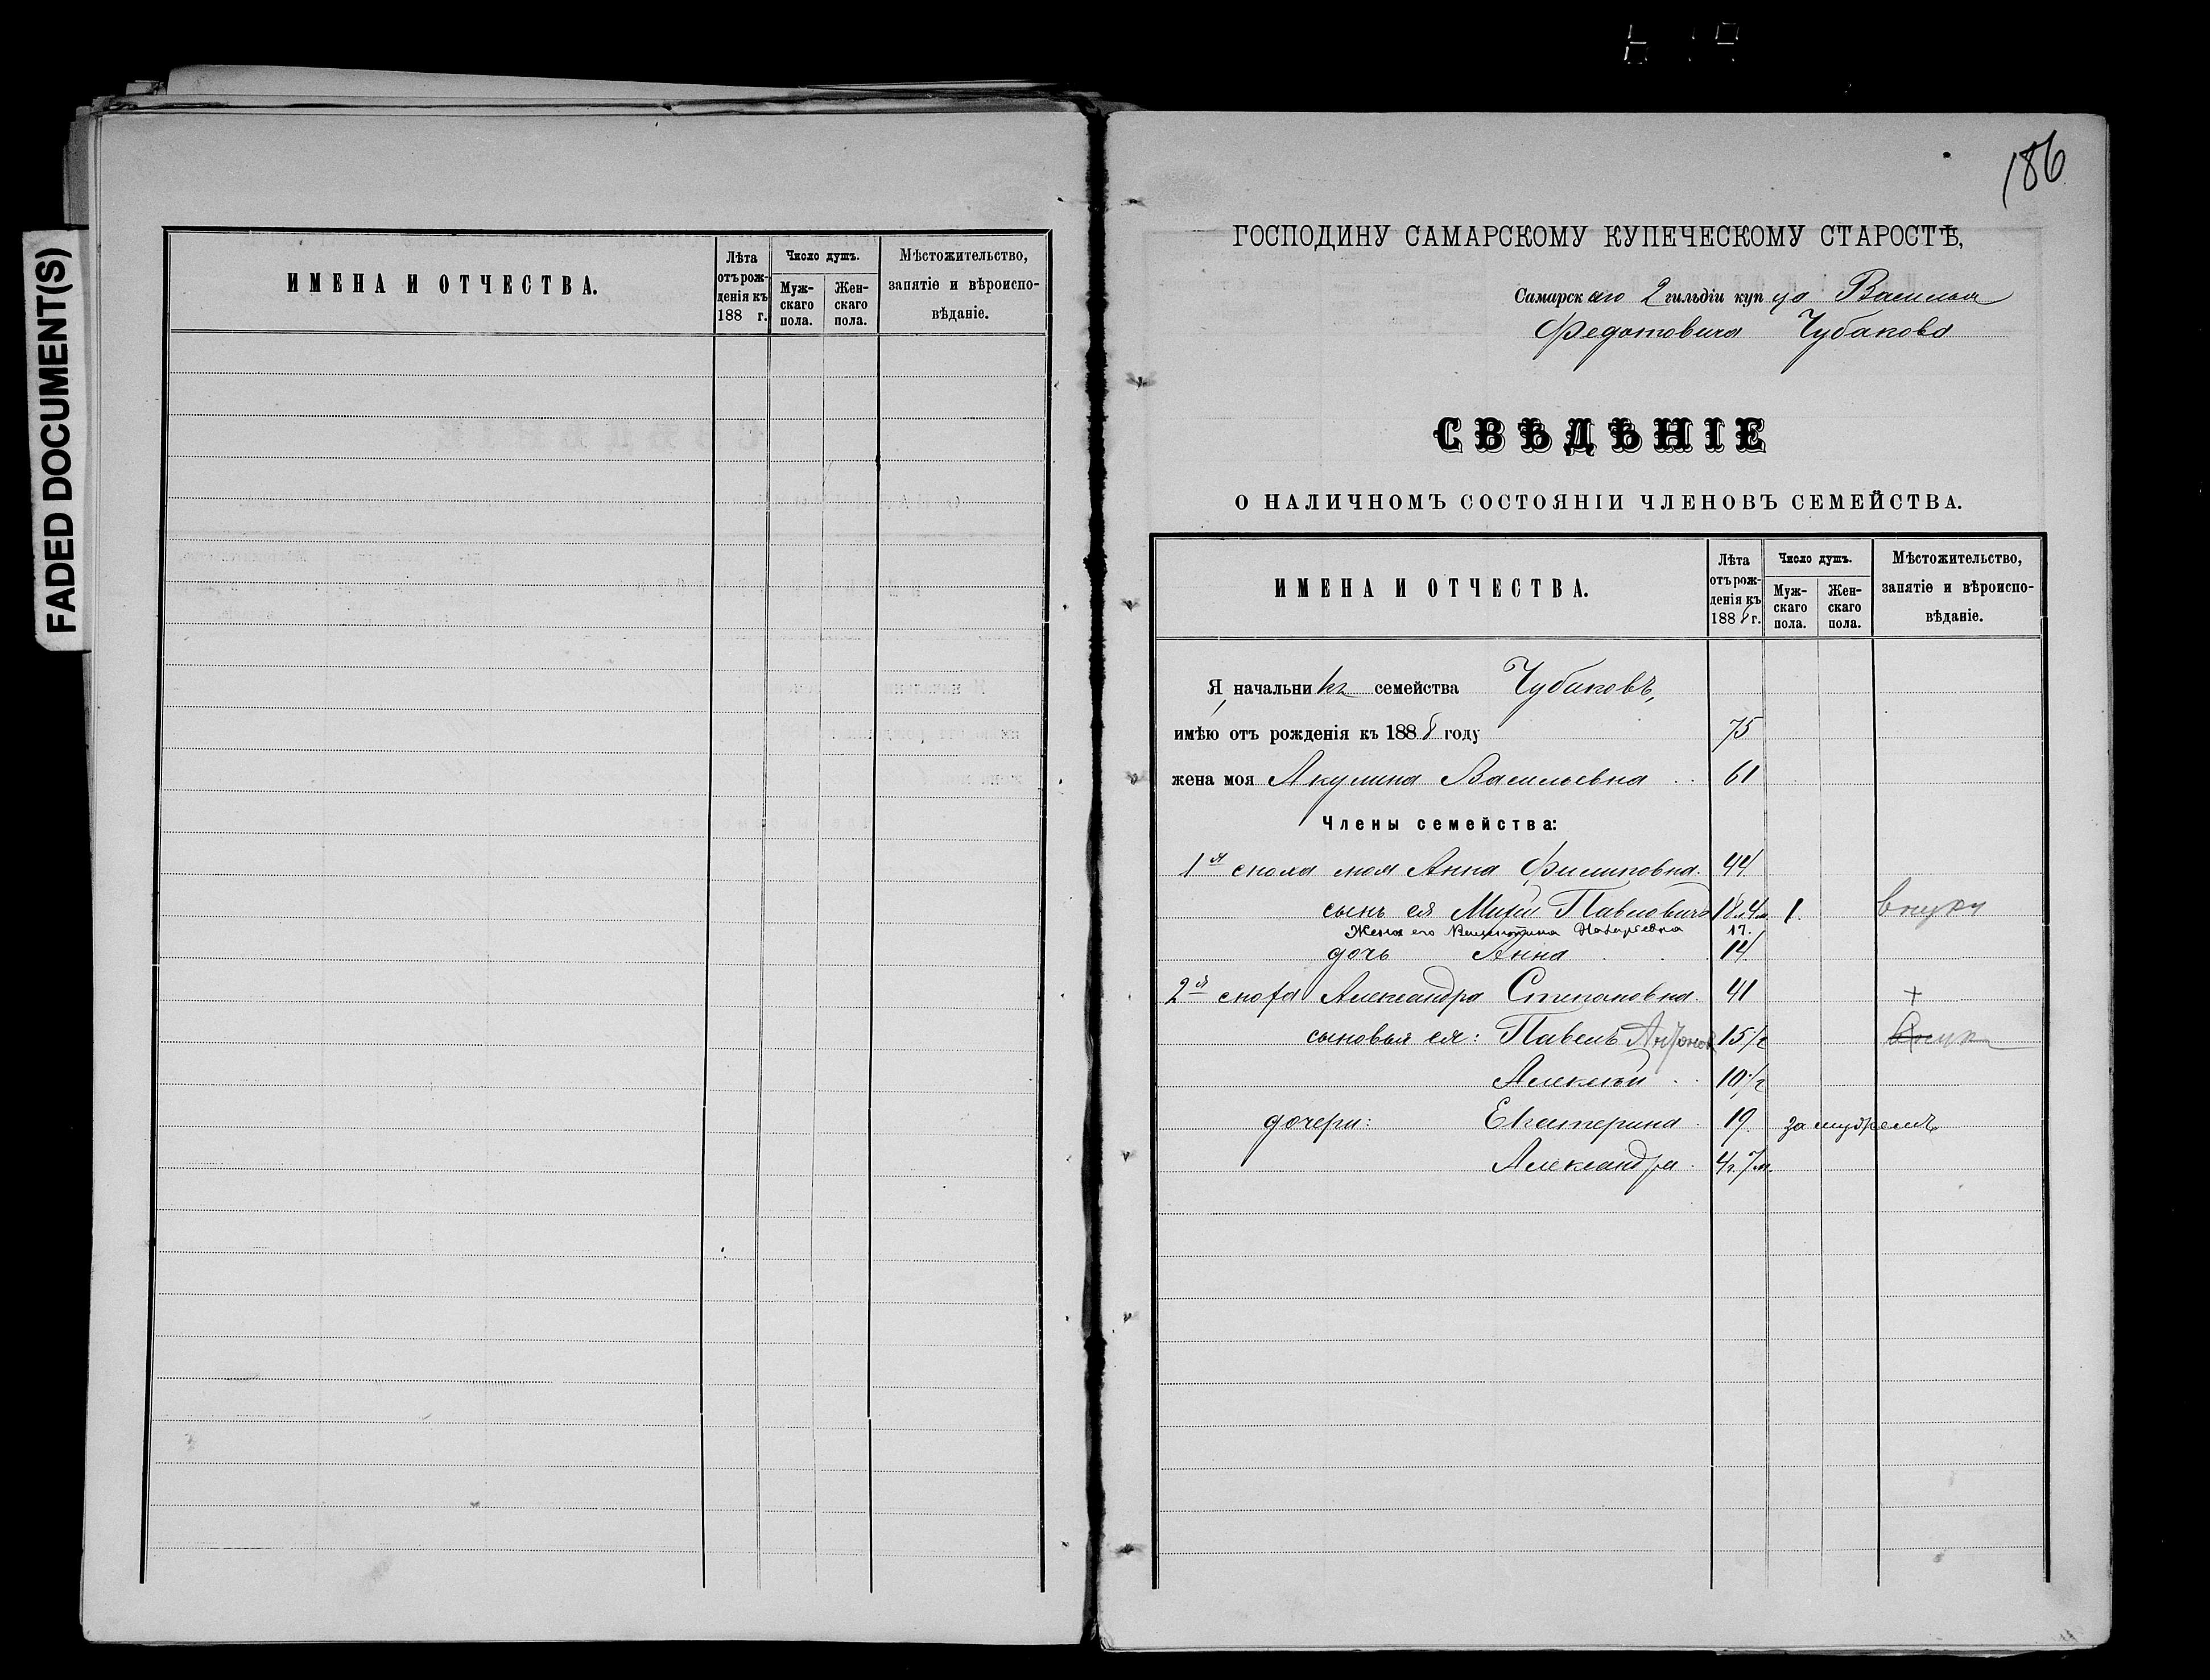 FADED DOCUMENT(S)
ИМЕНА И ОТЧЕСТВА.
Лѣта отъ рожденія къ 188 г.
Число душъ.
Мужскаго пола.
Женскаго пола.
Мѣстожительство, занятіе и вѣроисповѣданіе.
186
ГОСПОДИНУ САМАРСКОМУ КУПЕЧЕСКОМУ СТАРОСТѢ,
Самарскаго 2 гильдіи купца Василья
Федотовича Чубакова
СВѢДѢНІЕ
О НАЛИЧНОМЪ СОСТОЯНІИ ЧЛЕНОВЪ СЕМЕЙСТВА.
ИМЕНА И ОТЧЕСТВА.
Лѣта отъ рожденія къ 1888 г.
Число душъ.
Мужскаго пола.
Женскаго пола.
Мѣстожительство, занятіе и вѣроисповѣданіе.
Я, начальникъ семейства Чубаковъ,
имѣю отъ рожденія къ 1888 году 75
жена моя Акулина Васильевна 61
Члены семейства:
1я сноха моя Анна Филиповна. 44
сынъ ея Павловичъ 18 л 4 м. 1. внукъ
Жена его Назарьевна 17.
дочь Анна 14
2я сноха Александра Степановна. 41 +
сыновья ея: Павелъ Антонов 15 1/2
Алексѣй 10 1/2
дочери: Екатерина 19 замужемъ
Александра 4 г. 7 м.